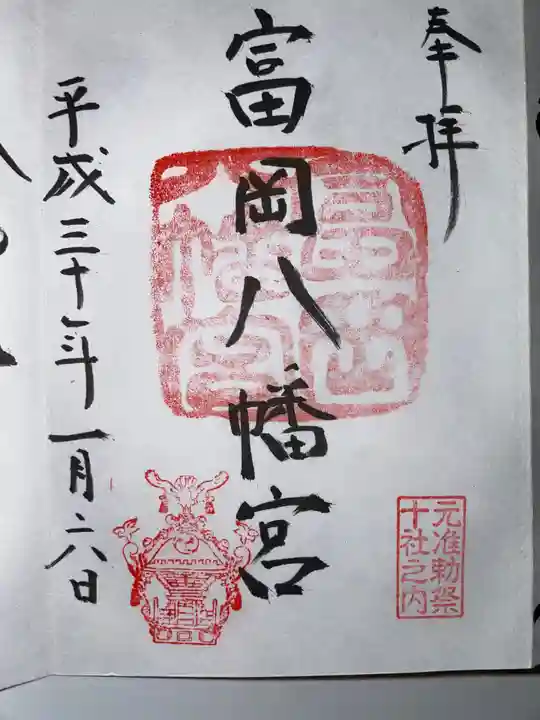 奉拝
元准勅祭
十社之内
富岡八幡宮
富岡
八幡宮
平成三十年一月六日